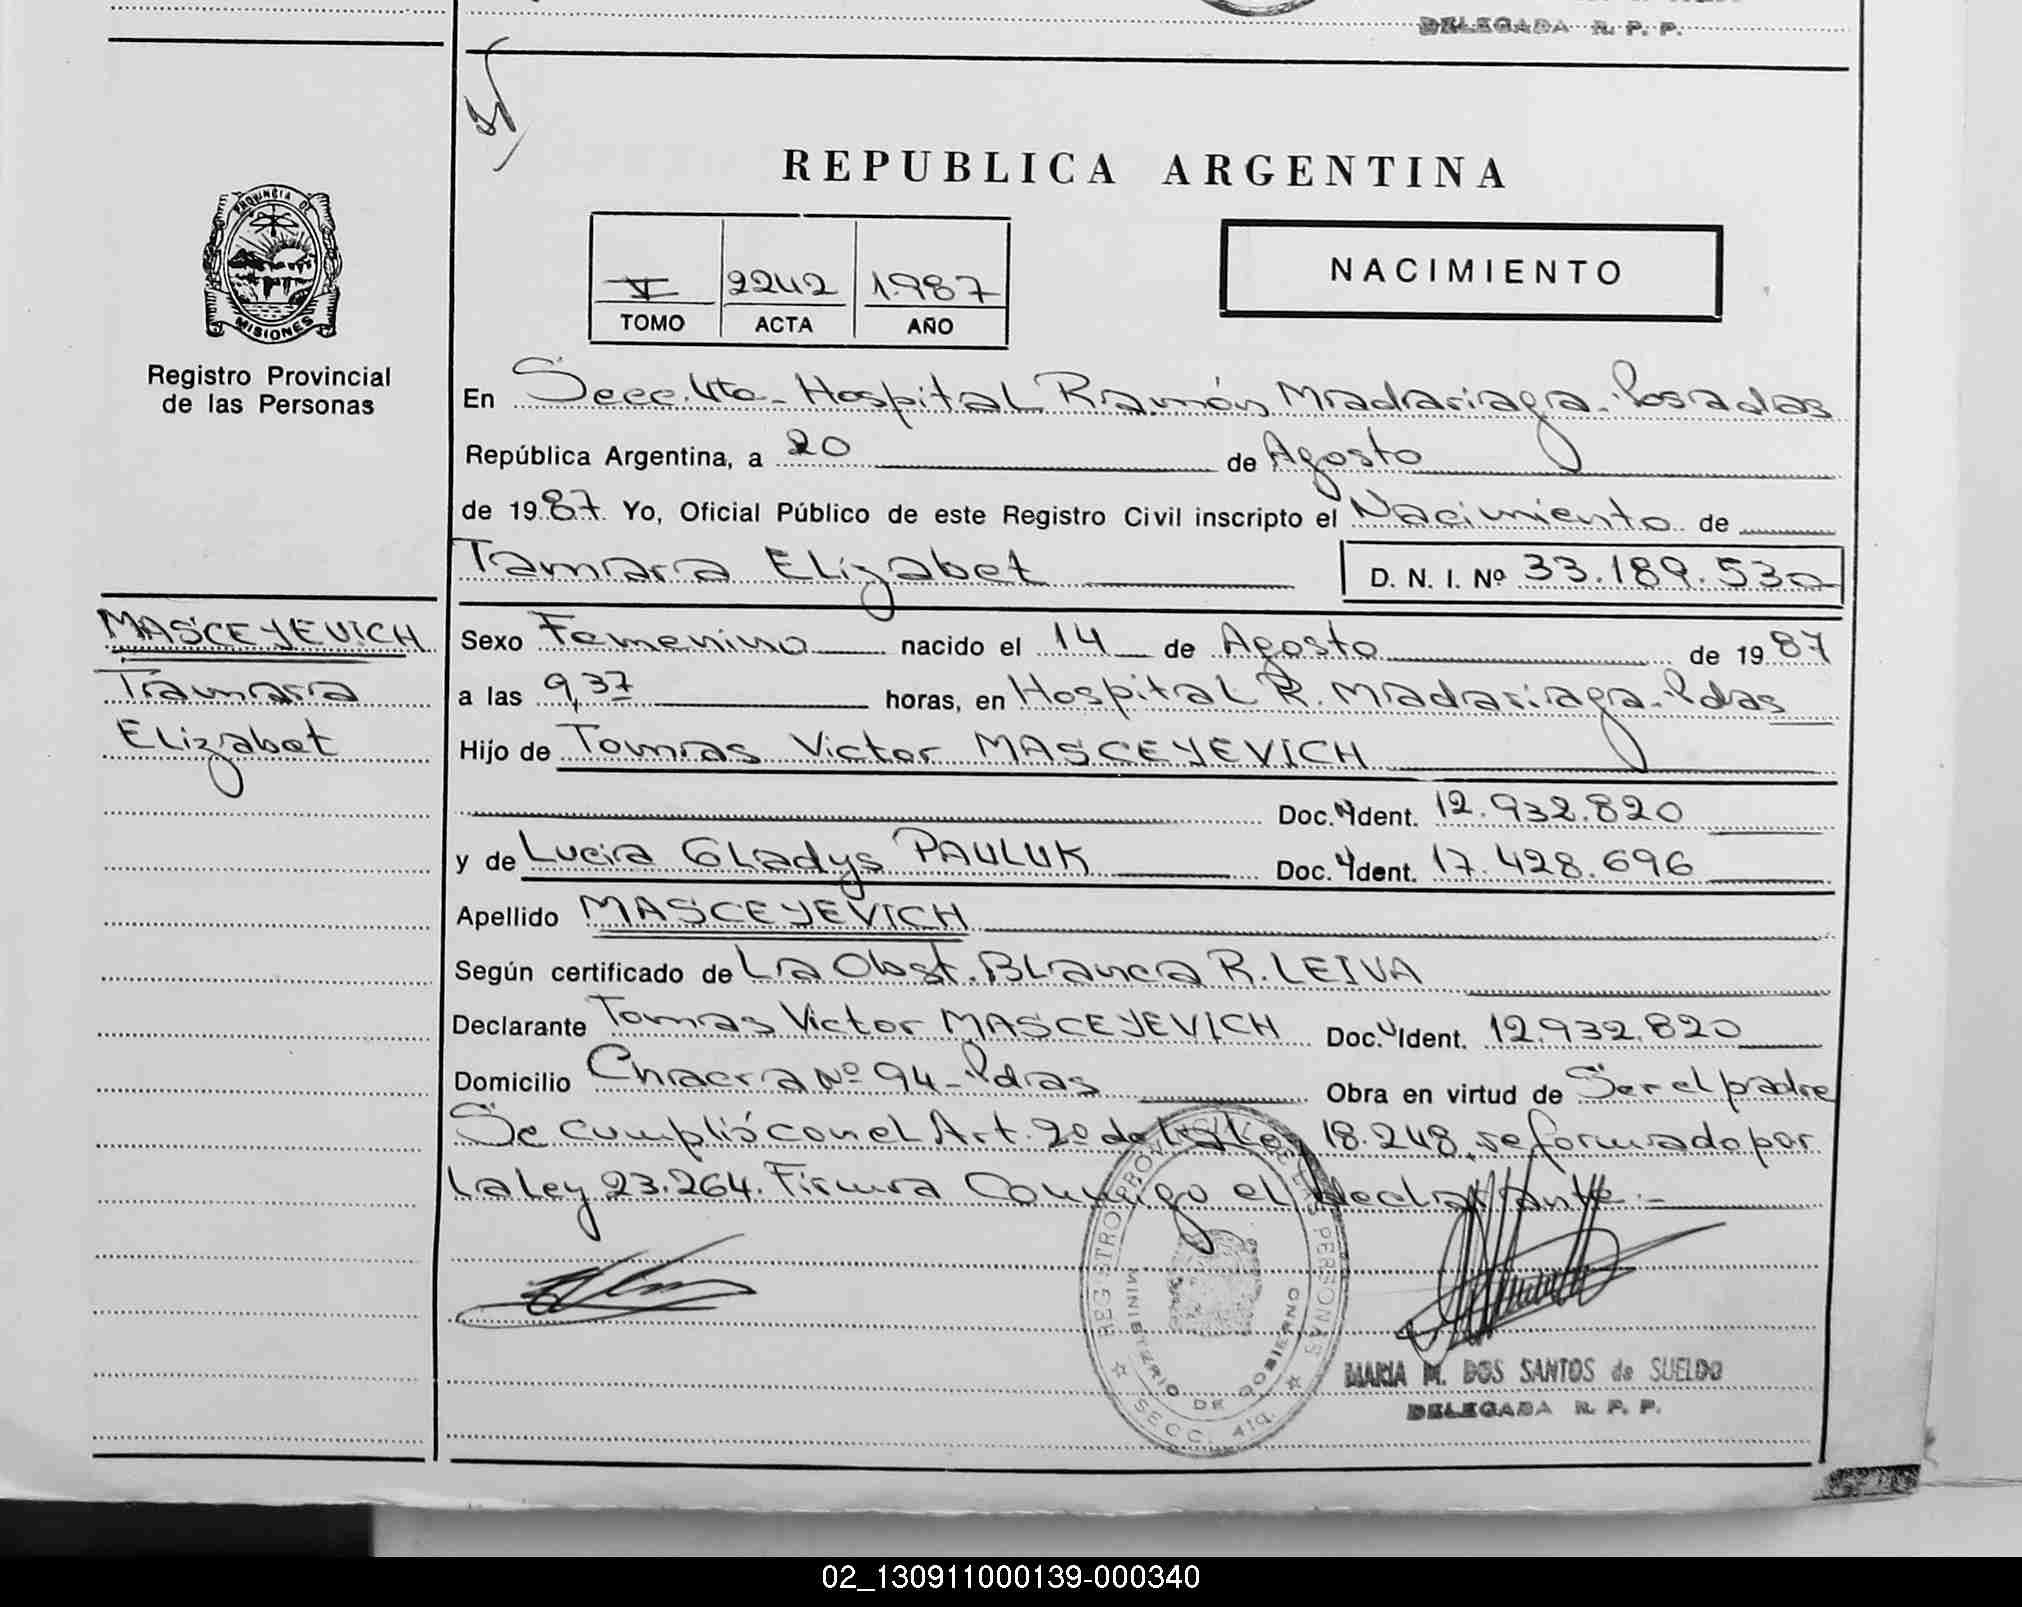 DELEGADA R. P. P.
REPUBLICA ARGENTINA
PROVINCIA DE
MISIONES
Registro Provincial
de las Personas
V 2242 1.987
TOMO ACTA AÑO
NACIMIENTO
En Secc. 4ta - Hospital Ramón Madariaga - Posadas
República Argentina, a 20 de Agosto
de 1987. Yo, Oficial Público de este Registro Civil inscripto el Nacimiento de
Tamara Elizabet D. N. I. Nº 33.189.530
MASCEYEVICH
Tamara
Elizabet
Sexo Femenino nacido el 14 de Agosto de 1987
a las 9,37 horas, en Hospital R. Madariaga - Pdas
Hijo de Tomas Victor MASCEYEVICH
Doc. Ident. 12.932.820
y de Lucia Gladys PAULUK Doc. Ident. 17.428.696
Apellido MASCEYEVICH
Según certificado de La Obst. Blanca R. LEIVA
Declarante Tomas Victor MASCEYEVICH Doc. Ident. 12.932.820
Domicilio Chacra Nº 94 - Pdas Obra en virtud de Ser el padre
Se cumplió con el Art. 2º de la Ley 18.248, reformado por
la Ley 23.264. Firma Conmigo el declarante.-
REGISTRO PROVINCIAL DE LAS PERSONAS
MINISTERIO DE GOBIERNO
SECC. 4ta.
MARIA M. DOS SANTOS de SUELDO
DELEGADA R. P. P.
02_130911000139-000340